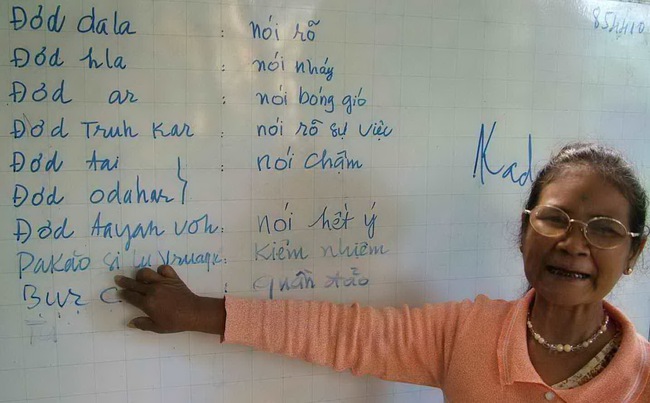 Đơd dala : nói rõ
Đơd hla : nói nháy
Đơd ar : nói bóng gió
Đơd Truh Kar : nói rõ sự việc
Đơd tai : nói chậm
Đơd odahar
Đơd tayah voh : nói hết ý
Pakào si lu : Kiêm nhiệm
Bưr : quần tảo
Kad